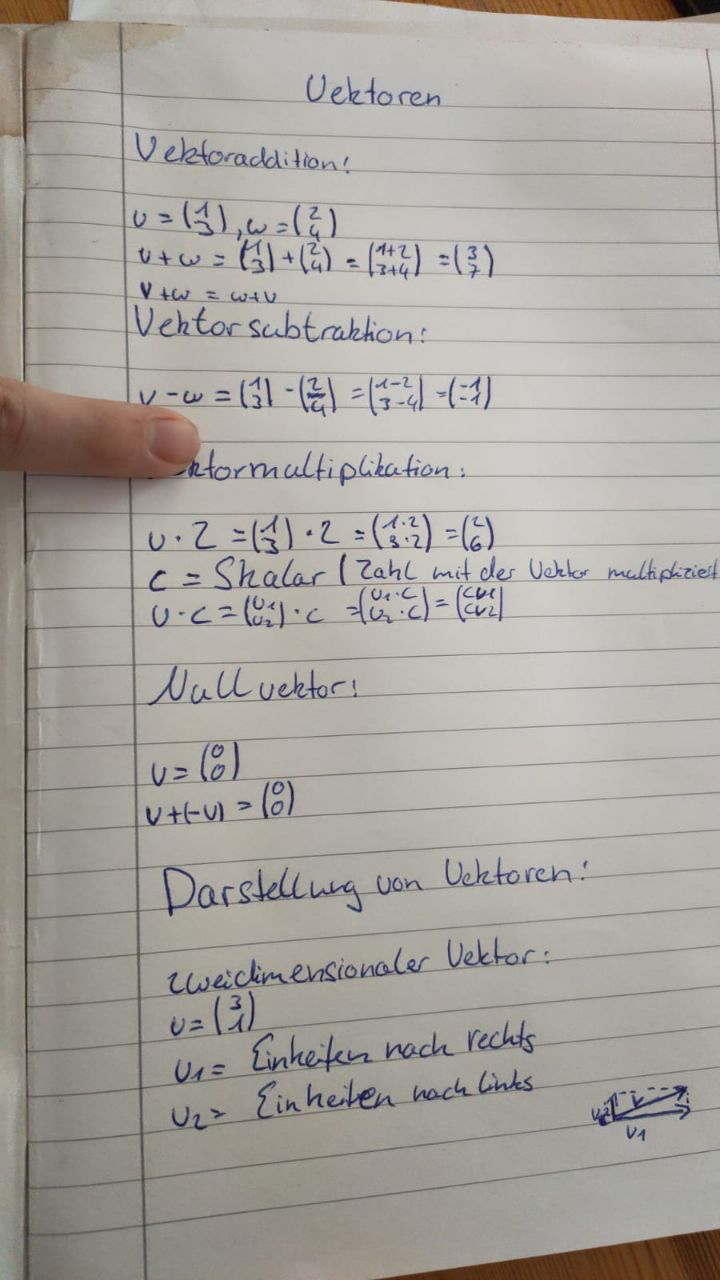 Vektoren
Vektoraddition:
v = (1 3), w = (2 4)
v + w = (1 3) + (2 4) = (1+2 3+4) = (3 7)
v + w = w + v
Vektorsubtraktion:
v - w = (1 3) - (2 4) = (1-2 3-4) = (-1 -1)
ktormultiplikation:
v · 2 = (1 3) · 2 = (1·2 3·2) = (2 6)
c = Skalar / Zahl mit der Vektor multipliziert
v · c = (v1 v2) · c = (v1·c v2·c) = (cv1 cv2)
Nullvektor:
v = (0 0)
v + (-v) = (0 0)
Darstellung von Vektoren:
zweidimensionaler Vektor:
v = (3 1)
v1 = Einheiten nach rechts
v2 = Einheiten nach links
v2 v
v1